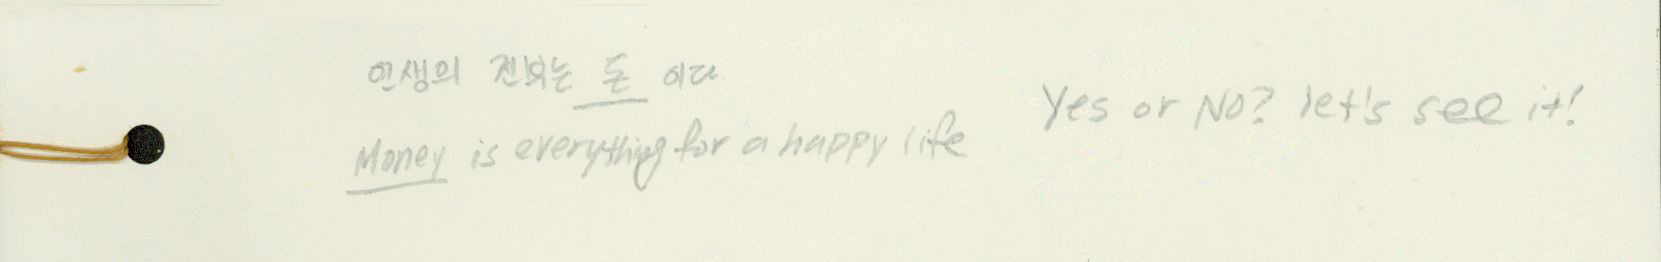 인생의 진리는 돈 이다
Money is everything for a happy life
Yes or No? let's see it!